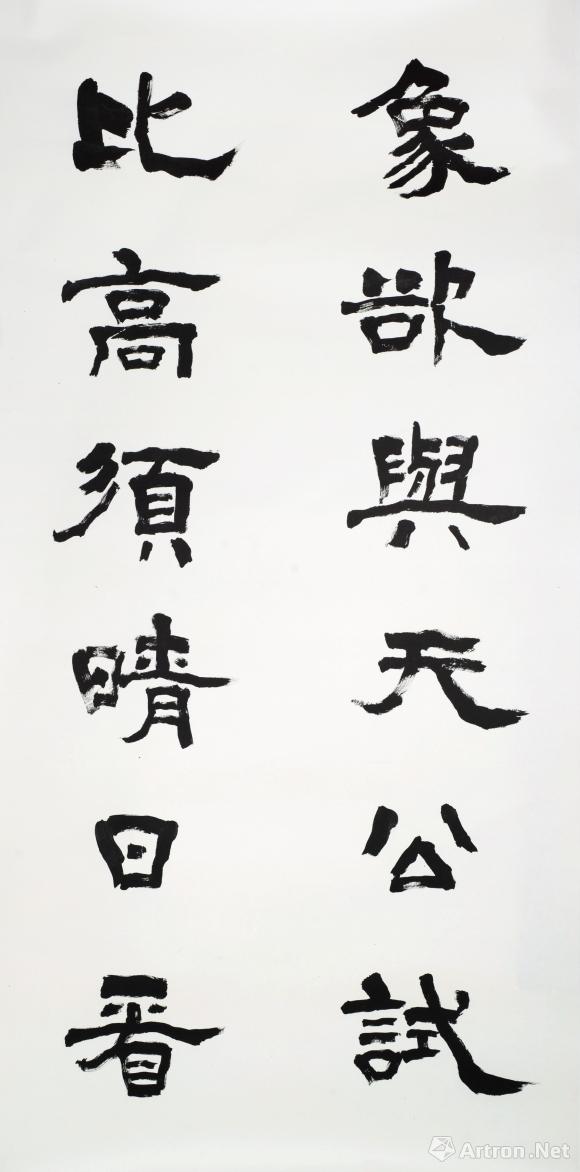 象欲與天公試
比高須晴日看
Artron.Net